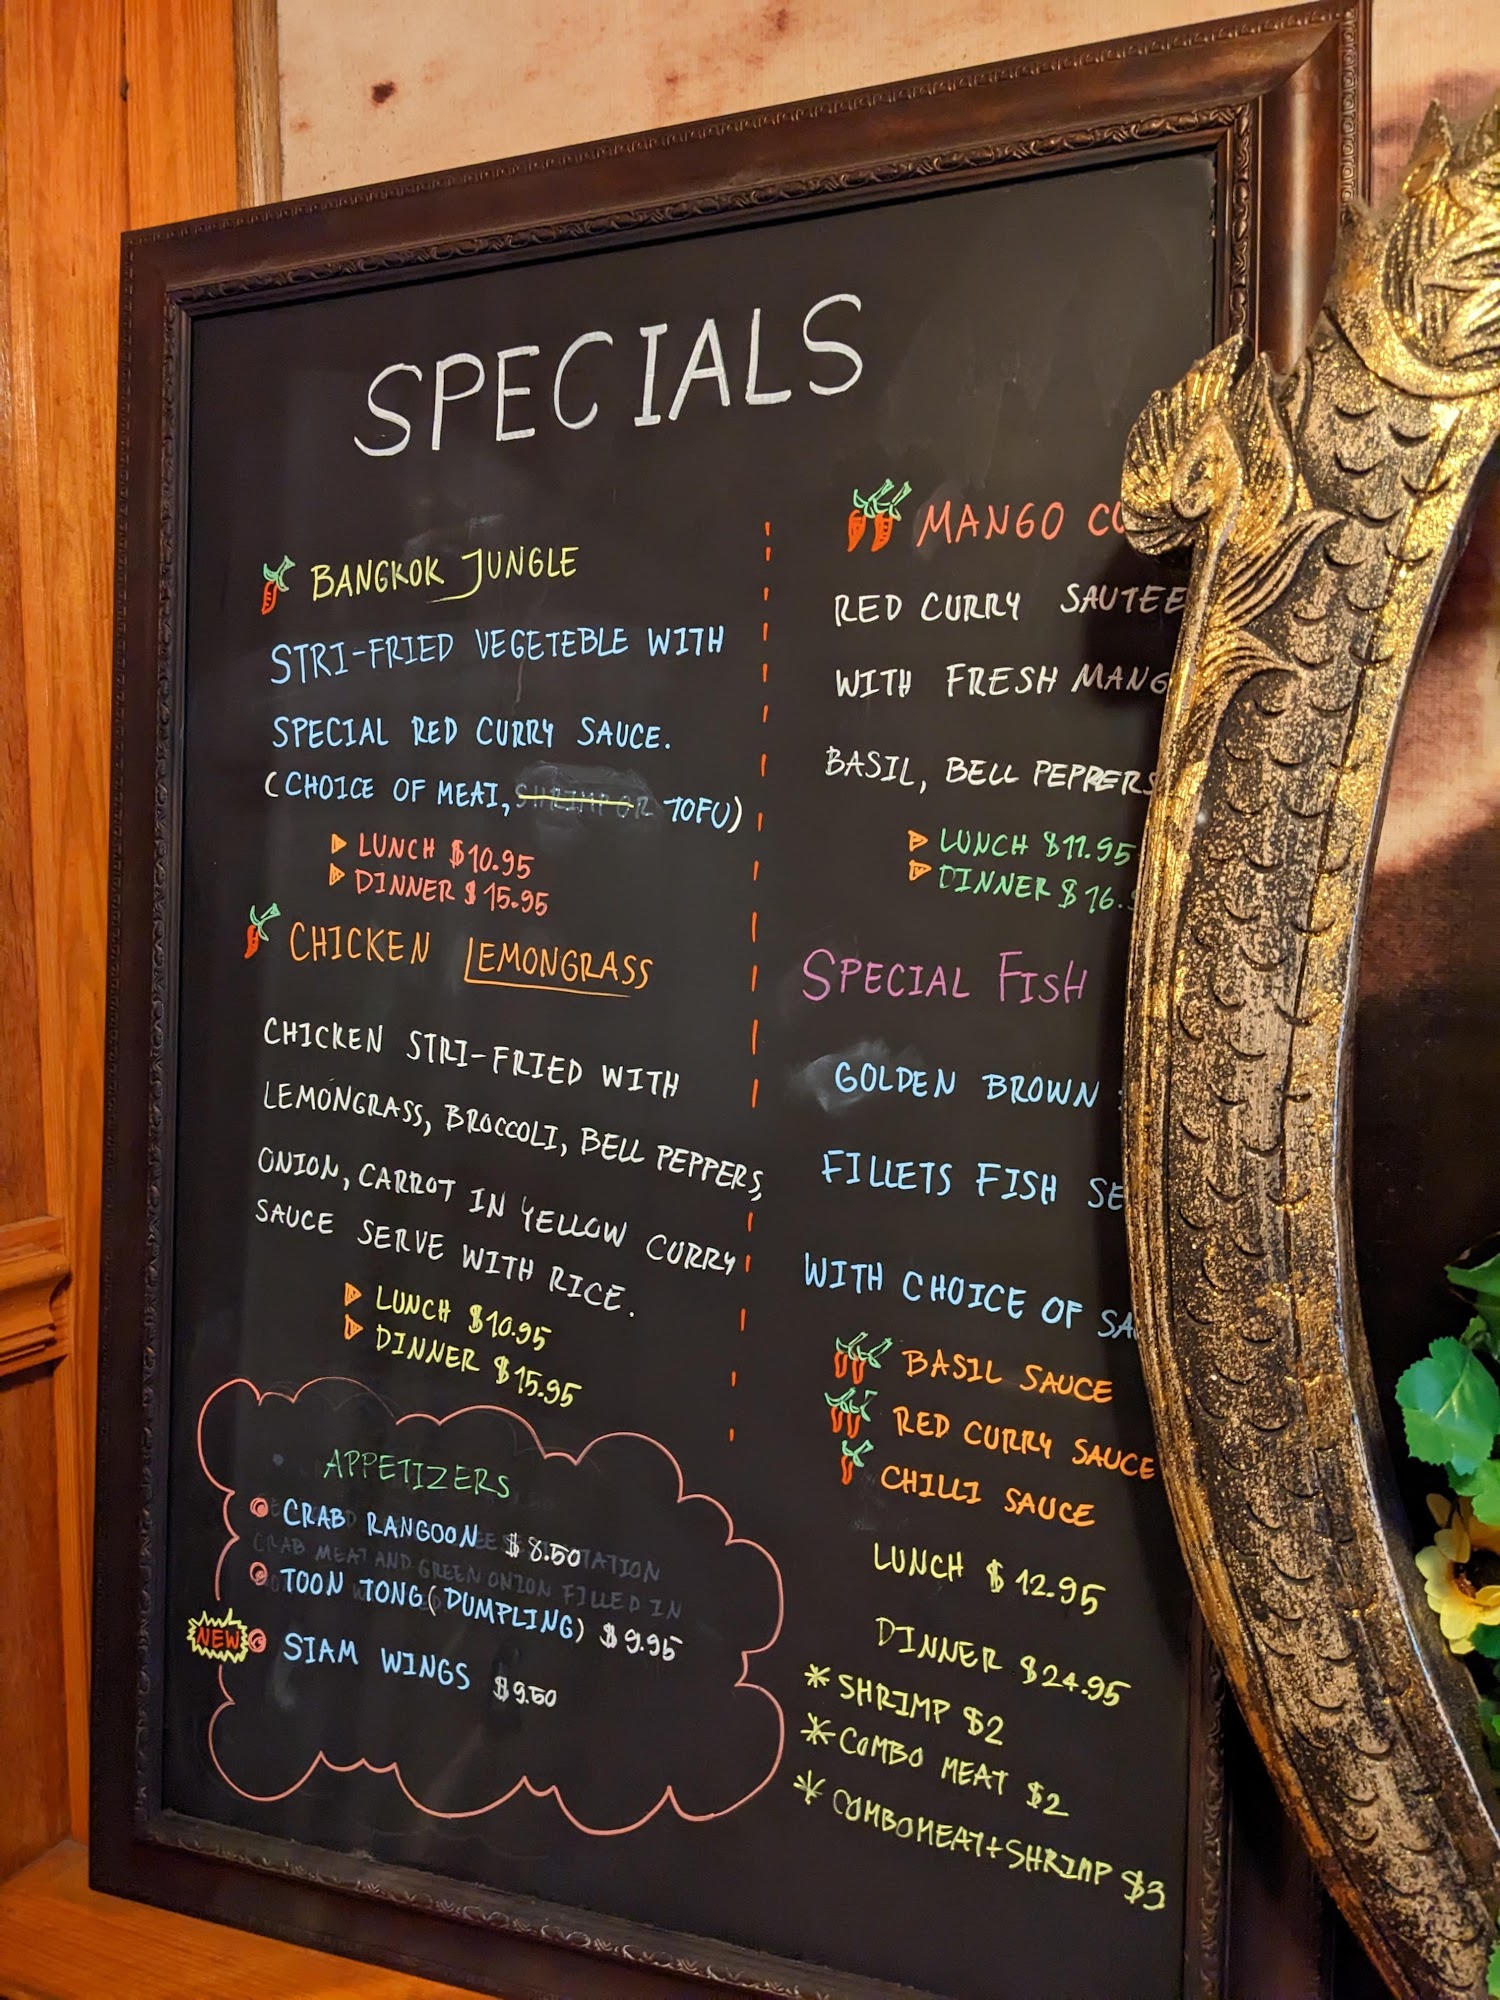 SPECIALS
BANGKOK JUNGLE
STRI-FRIED VEGETEBLE WITH
SPECIAL RED CURRY SAUCE.
(CHOICE OF MEAT, SHRIMP OR TOFU)
LUNCH $10.95
DINNER $15.95
CHICKEN LEMONGRASS
CHICKEN STRI-FRIED WITH
LEMONGRASS, BROCCOLI, BELL PEPPERS,
ONION, CARROT IN YELLOW CURRY
SAUCE SERVE WITH RICE.
LUNCH $10.95
DINNER $15.95
APPETIZERS
CRAB RANGOON $8.50
CRAB MEAT AND GREEN ONION FILLED IN
TOON TONG (DUMPLING) $9.95
NEW SIAM WINGS $9.50
MANGO
RED CURRY SAUTEE
WITH FRESH MANG
BASIL, BELL PEPPERS
LUNCH $11.95
DINNER $16.
SPECIAL FISH
GOLDEN BROWN
FILLETS FISH SE
WITH CHOICE OF SA
BASIL SAUCE
RED CURRY SAUCE
CHILLI SAUCE
LUNCH $12.95
DINNER $24.95
* SHRIMP $2
* COMBO MEAT $2
* COMBO MEAT + SHRIMP $3